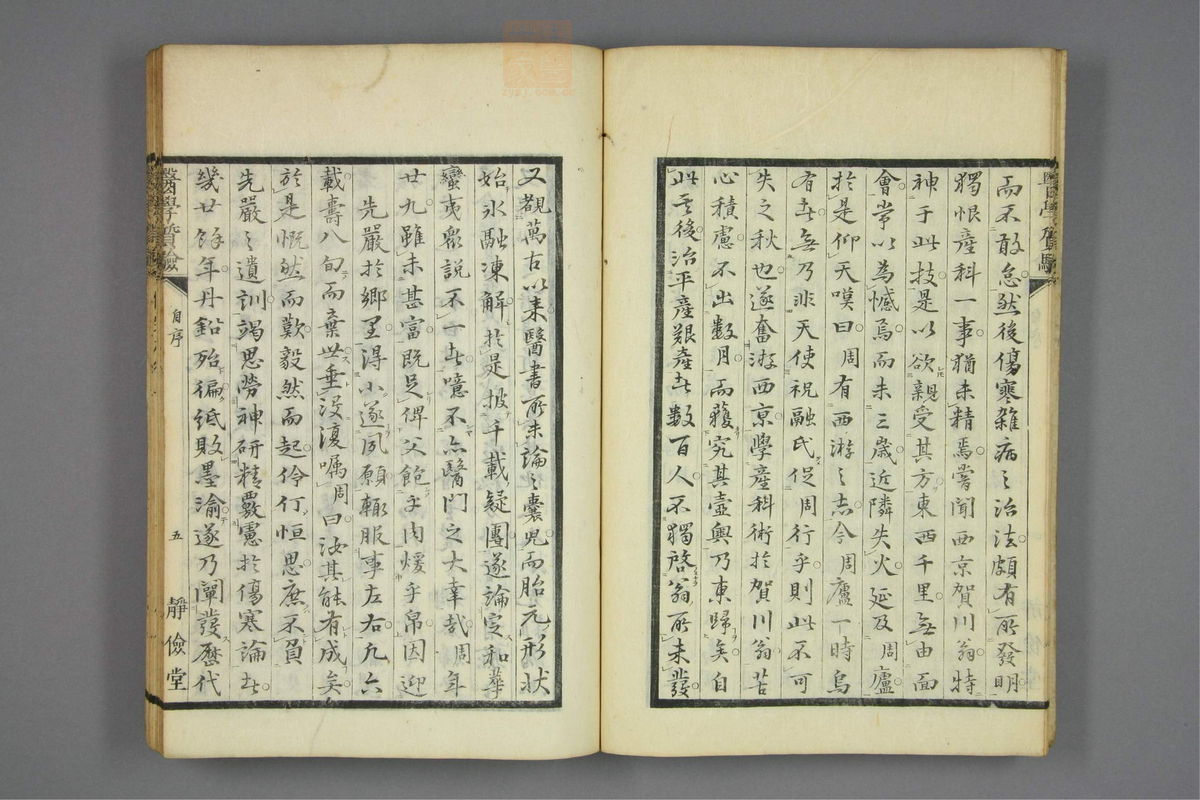 而不敢怠然後傷寒雜病之治法頗有所發明
獨恨產科一事猶未精焉嘗聞西京賀川翁特
神于此技是以欲親受其方東西千里無由面
會常以為憾焉而未三歲近隣失火延及周廬
於是仰天嘆曰周有西游之志今周廬一時烏
有者無乃非天使祝融氏促周行乎則此不可
失之秋也遂奮游西京學產科術於賀川翁苦
心積慮不出數月而獲究其壼奧乃東歸矣自
此後治平產艱產者數百人不獨啓翁所未發
又觀萬古以來醫書所未論之囊兒而胎元形狀
始氷融凍解於是披千載疑團遂論定和華
蠻夷衆說不一者噫不亦醫門之大幸哉周年
廿九雖未甚富既足俾父飽乎肉煖乎帛因迎
先嚴於鄉里得小遂夙願輙服事左右九六
載壽八旬而棄世垂沒復囑周曰汝其能有成矣
於是慨然而歎毅然而起伶仃恒思庶不負
先嚴之遺訓竭思勞神研精覈慮於傷寒論者
幾廿餘年丹鉛殆徧紙敗墨渝遂乃闡發歷代
醫學質驗
自序
五
靜儉堂